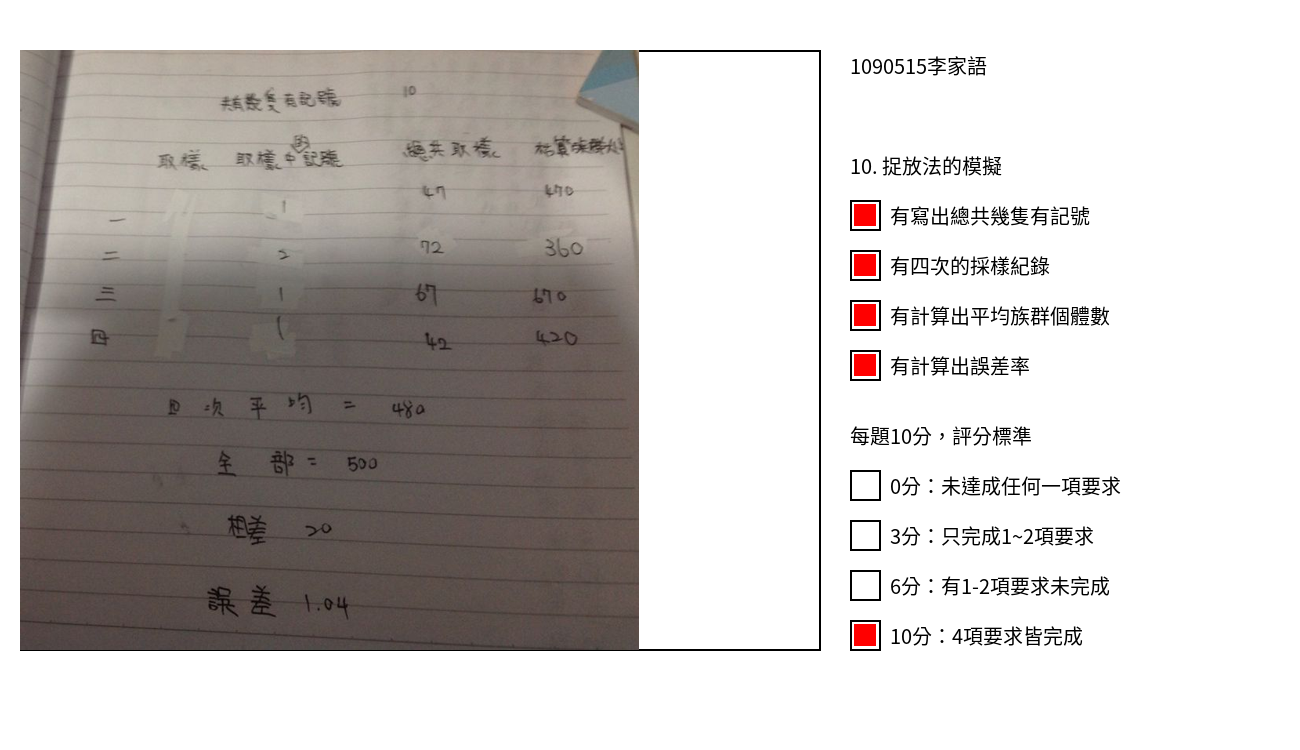 共有幾隻有記號 10
取樣 取樣中的記號 總共取樣 估算族群大小
一 1 47 470
二 2 72 360
三 1 67 670
四 1 42 420
四次平均 = 480
全部 = 500
相差 20
誤差 1.04
1090515李家語
10. 捉放法的模擬
有寫出總共幾隻有記號
有四次的採樣紀錄
有計算出平均族群個體數
有計算出誤差率
每題10分，評分標準
0分：未達成任何一項要求
3分：只完成1~2項要求
6分：有1-2項要求未完成
10分：4項要求皆完成